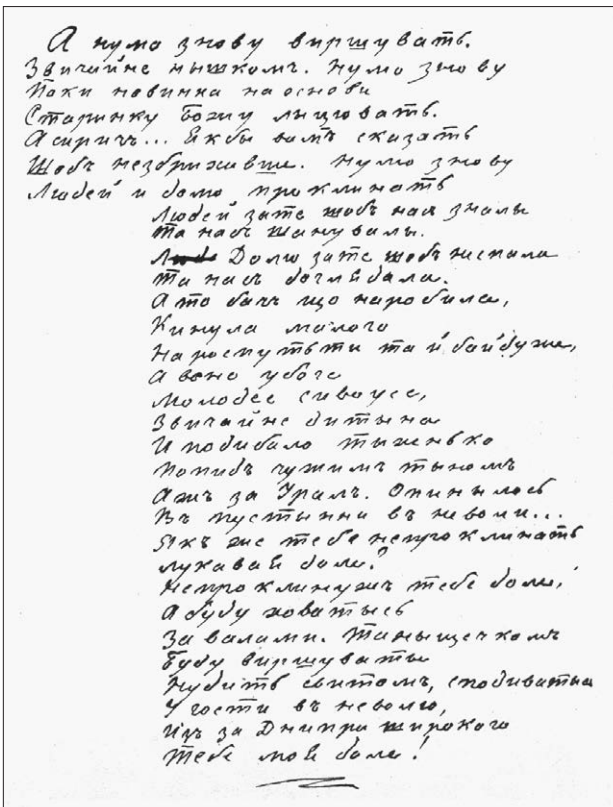 А нумо знову виршувать.
Звичайне нышкомъ. Нумо знову
Поки новинка на основи
Старинку Божу лицювать.
А сиричъ... Якбы вамъ сказать
Щобъ незбрихавши. Нумо знову
Людей и долю проклинать
Людей зате щобъ насъ зналы
Та насъ шанувалы.
Долю зате щобъ неспала
Та насъ доглядала.
А то бачъ що наробила,
Кинула малого
На роспутьти та й байдуже,
А воно убоге
Молодее сивоусе,
Звичайне дитына
И подибало тыхенько
Попидъ чужимъ тыномъ
Ажъ за Уралъ. Опинылось
Въ пустынни въ неволи...
Якъ же тебе непроклинать
лукавая доле?
Непроклинужъ тебе доле,
А буду ховатысь
За валами. Та нышечкомъ
Буду виршуваты
Нудить свитомъ, сподиватыся
У гости въ неволю,
Изъ за Днипра широкого
Тебе моя доле!